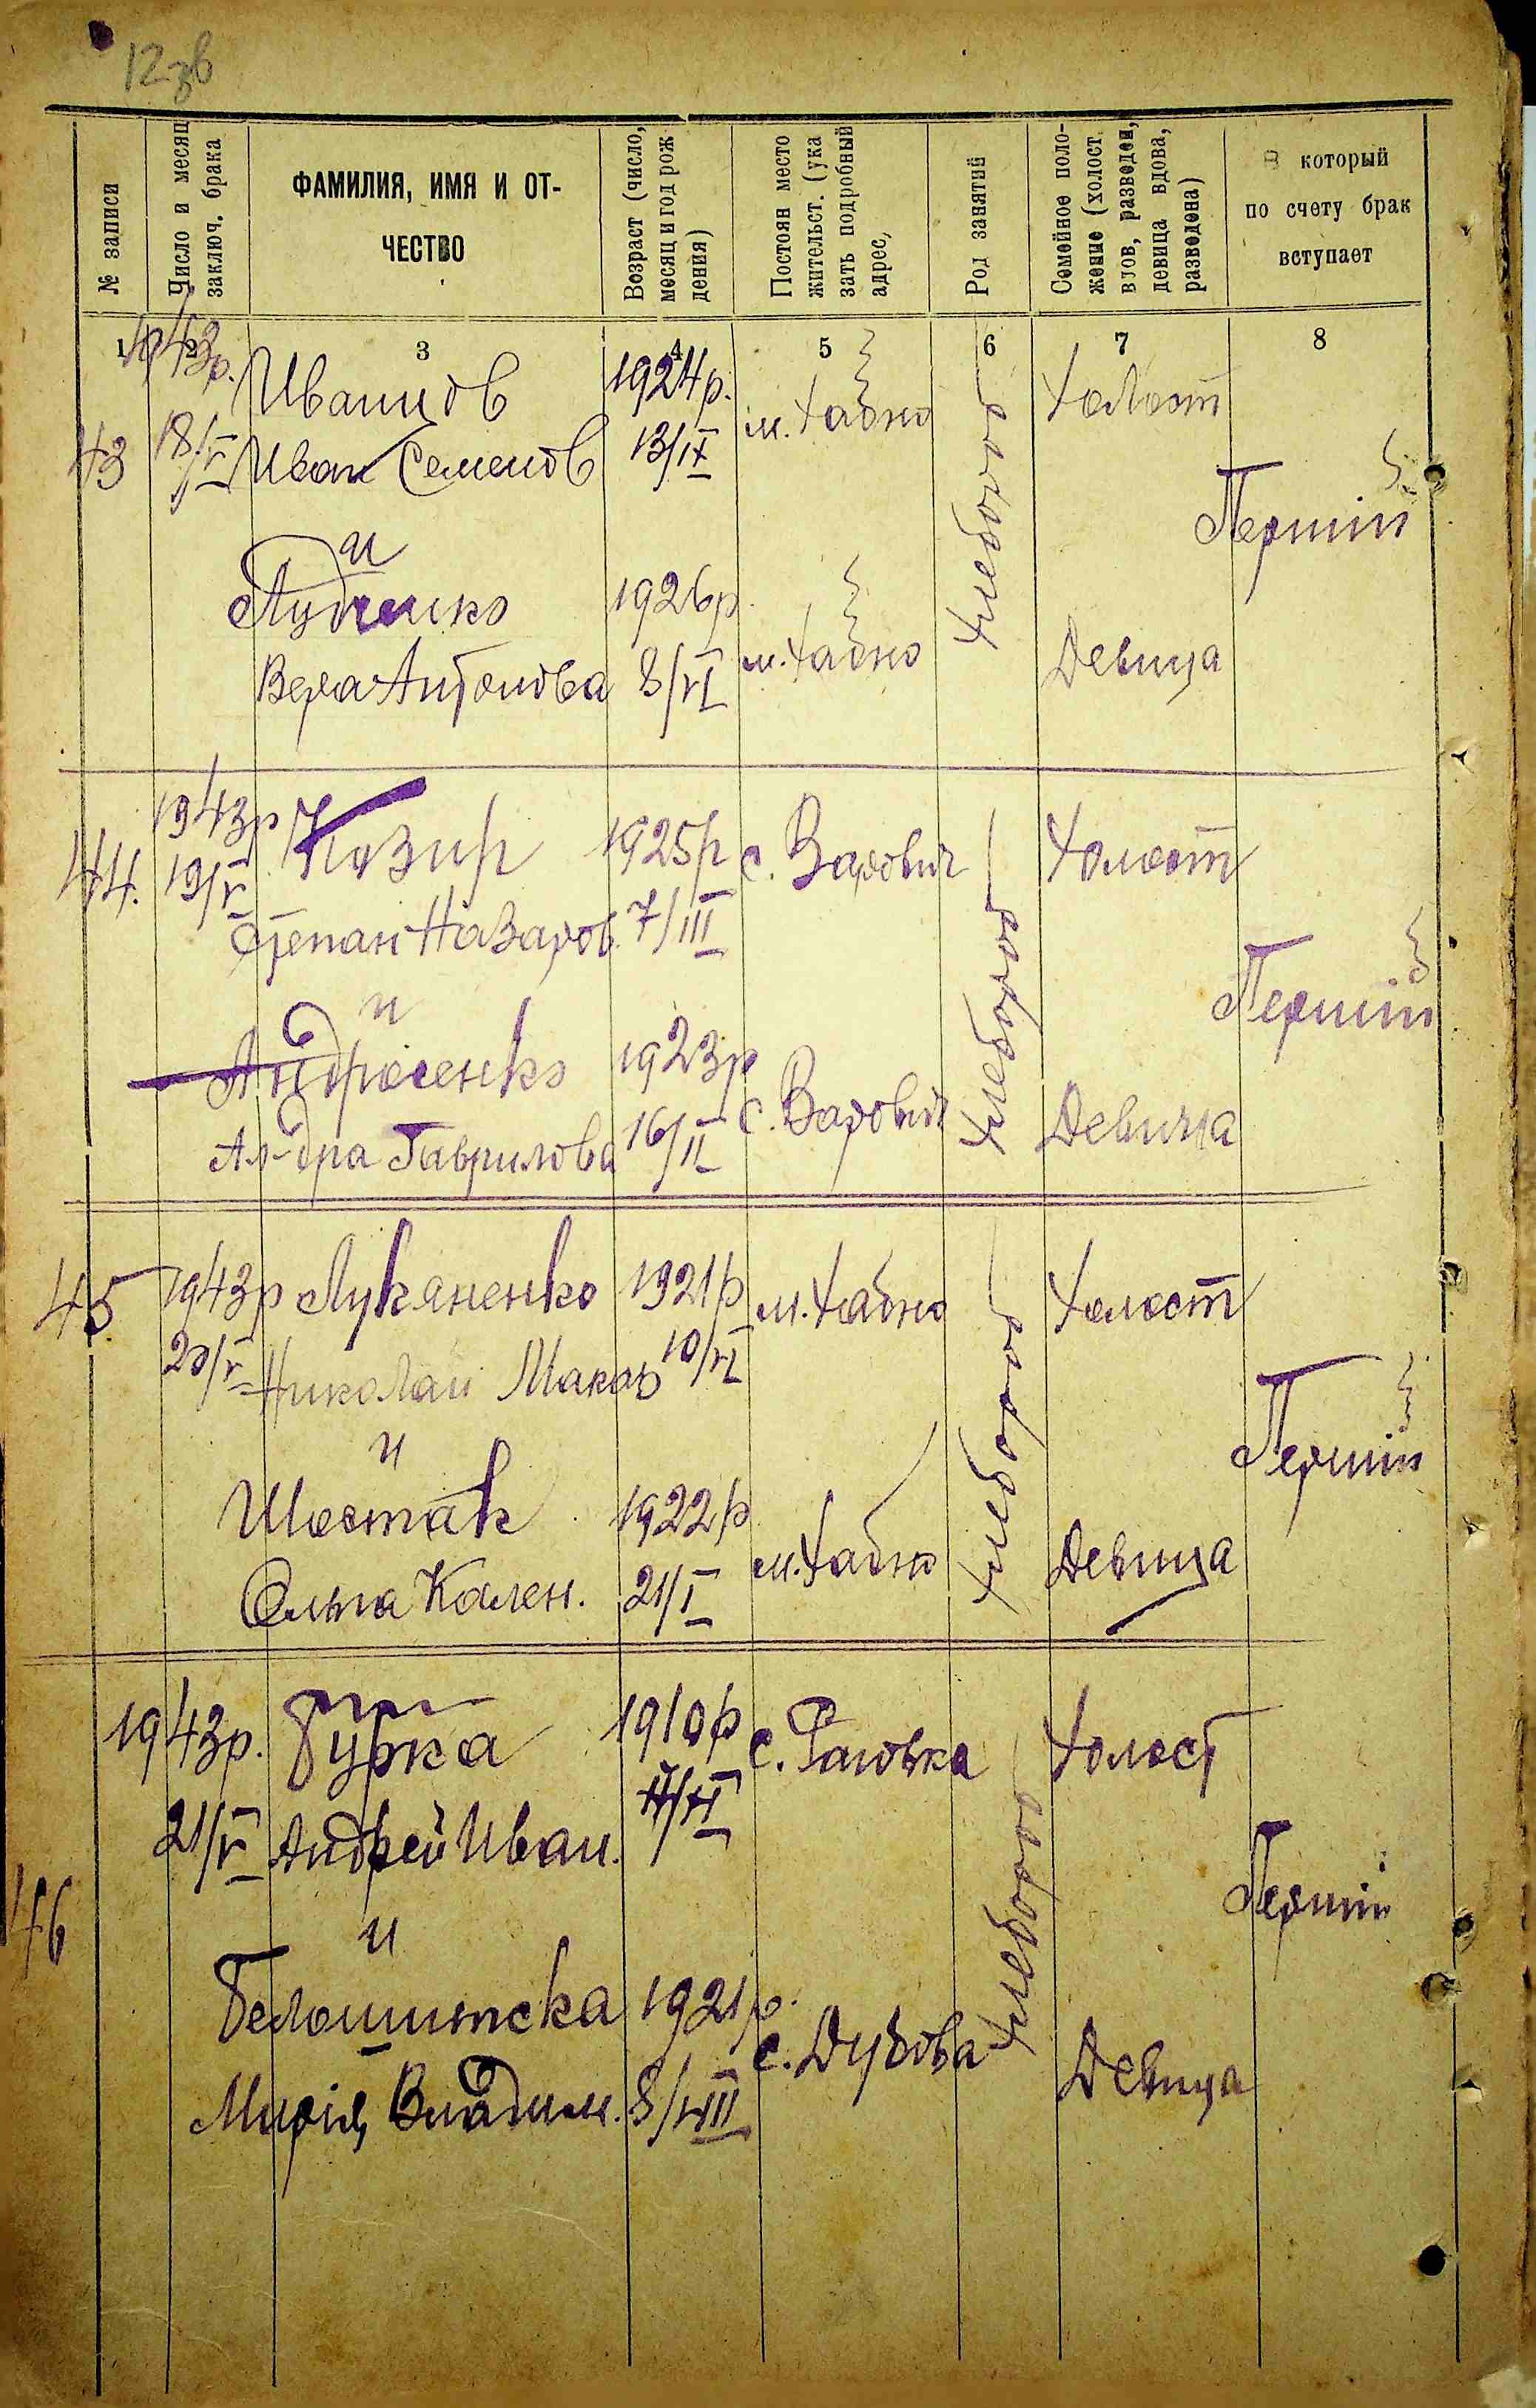 12зв
№ записи
Число и месяц
заключ. брака
ФАМИЛИЯ, ИМЯ И ОТ-
ЧЕСТВО
Возраст (число,
месяц и год рож
дения)
Постоян место
жительст. (ука
зать подробный
адрес,
Род занятий
Семейное поло-
жение (холост
вдов, разведен,
девица вдова,
разведена)
В который
по счету брак
вступает
1 2 3 4 5 6 7 8
1943р. Иванцов 1924р. м. Хабно Хлебороб Холост
43 18/V Иван Семенов 13/IX
Перший
и
1926р.
Вера Антонова 8/VI м. Хабно Девица
1943р Козир 1925р с. Варовичі Хлебороб Холост
44. 19/V Степан Назаров. 7/III
Перший
и
Андросенко 1923р
Ал-дра Гаврилова 16/II с. Варовичі Девица
45 1943р Луканенко 1921р м. Хабно Хлебороб Холост
20/V Николай Макар 10/VI
Перший
и
Шостак 1922р
Ольга Кален. 21/I м. Хабно Девица
1943р. Гурка 1910р с. Раговка Хлебороб Холост
21/V Андрей Иван.
46 Перший
и
Белошитска 1921р.
Марія Владим. 8/VIII с. Дубова Девица